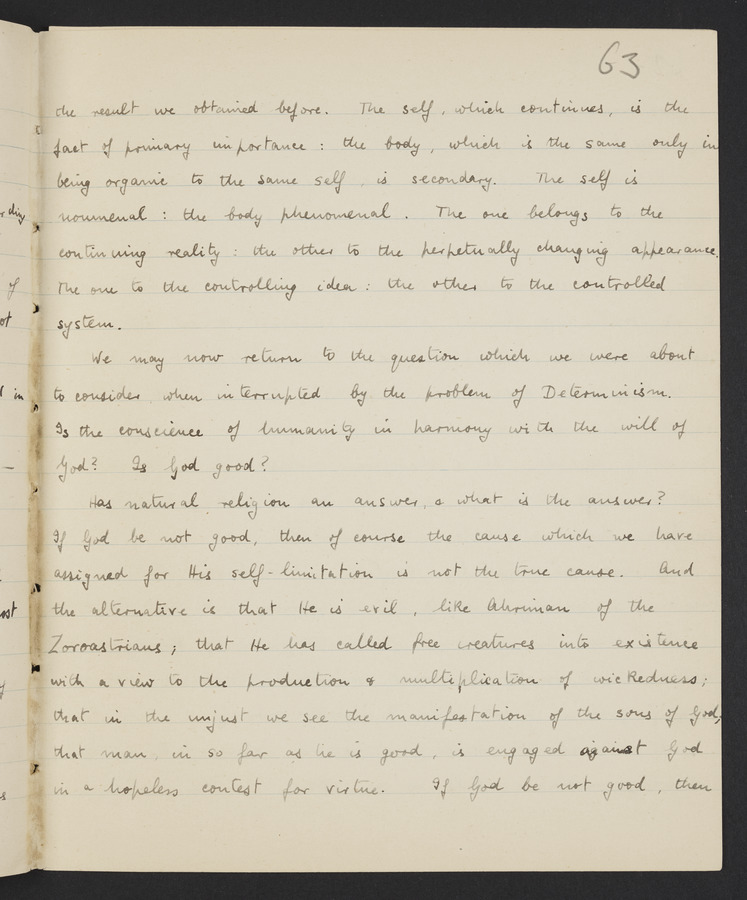 63
the result we obtained before. The self, which continues, is the
fact of primary importance : the body, which is the same only in
being organic to the same self, is secondary. The self is
noumenal : the body phenomenal. The one belongs to the
continuing reality : the other to the perpetually changing appearance.
The one to the controlling idea : the other to the controlled
system.
We may now return to the question which we were about
to consider when interrupted by the problem of Determinism.
Is the conscience of humanity in harmony with the will of
God? Is God good?
Has natural religion an answer, & what is the answer?
If God be not good, then of course the cause which we have
assigned for His self-limitation is not the true cause. And
the alternative is that He is evil, like Ahriman of the
Zoroastrians; that He has called free creatures into existence
with a view to the production & multiplication of wickedness;
that in the unjust we see the manifestation of the sons of God;
that man, in so far as he is good, is engaged against God
in a hopeless contest for virtue. If God be not good, then